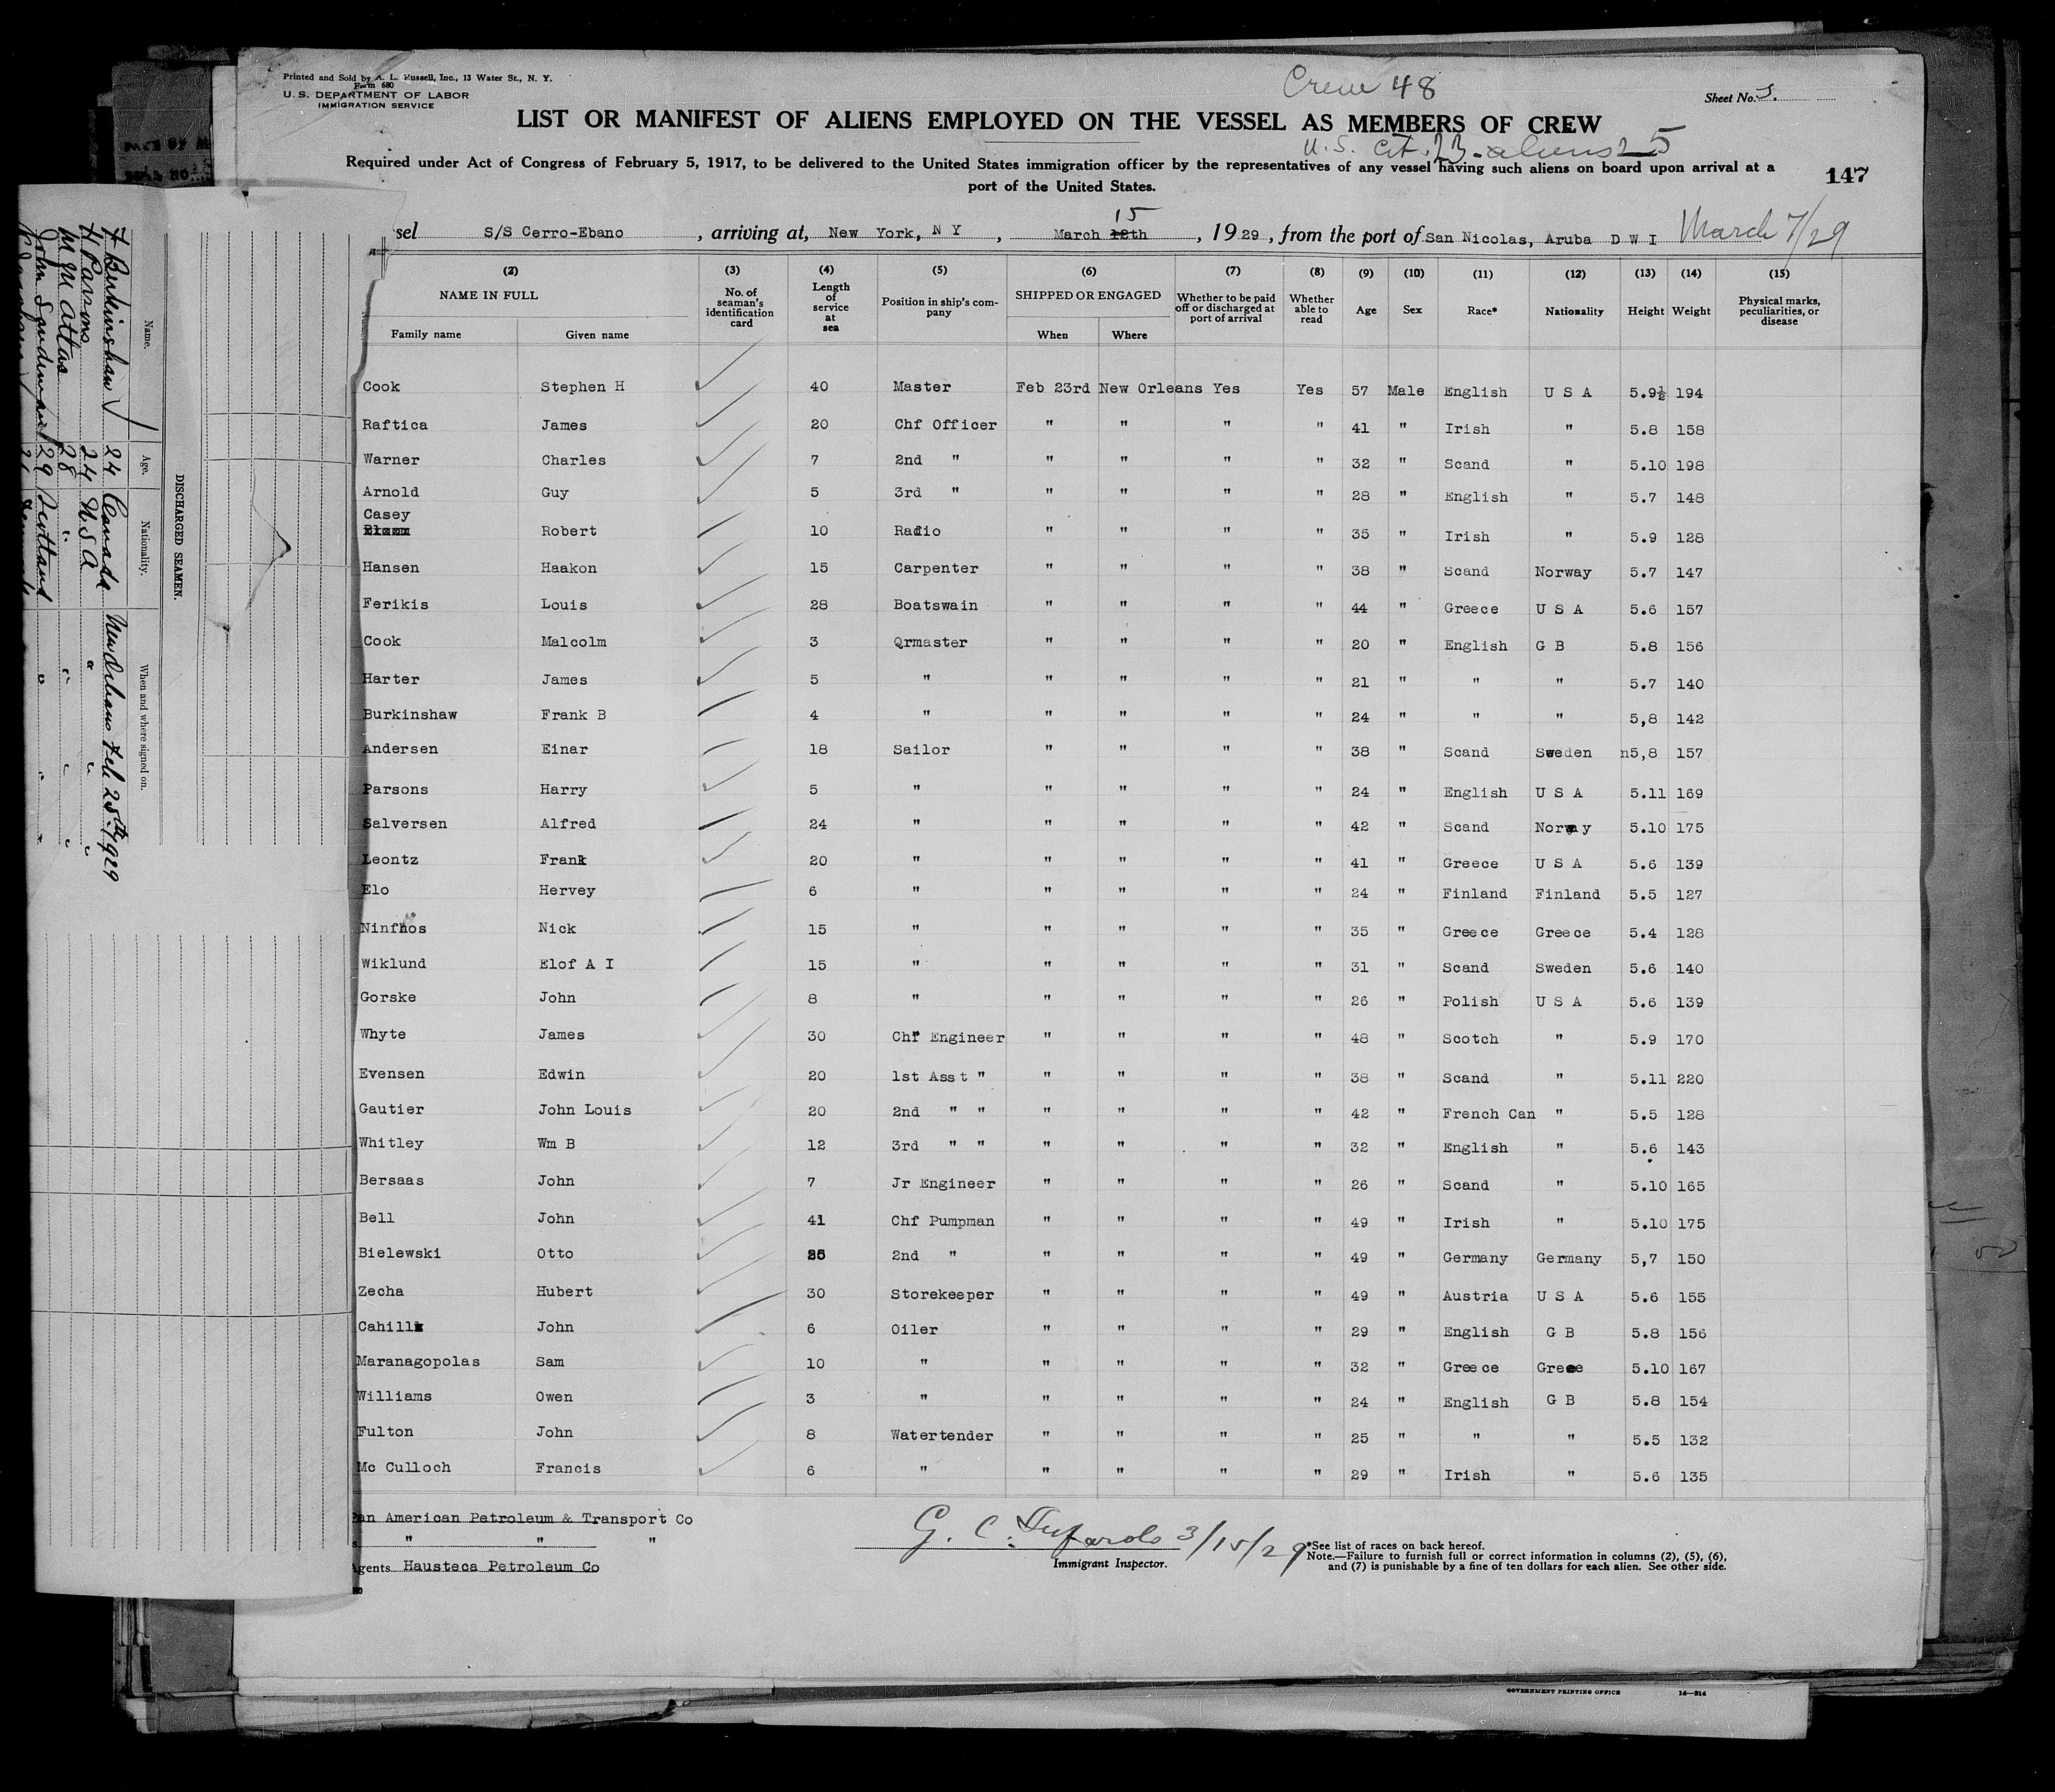 Printed and Sold by A. L. Russell, Inc., 13 Water St., N. Y.
Form 680
U. S. DEPARTMENT OF LABOR
IMMIGRATION SERVICE
Crew 48
Sheet No. 
LIST OR MANIFEST OF ALIENS EMPLOYED ON THE VESSEL AS MEMBERS OF CREW
U.S. Cit. 23 - aliens 25
Required under Act of Congress of February 5, 1917, to be delivered to the United States immigration officer by the representatives of any vessel having such aliens on board upon arrival at a
port of the United States.
147
sel S/S Cerro-Ebano, arriving at, New York, N Y, March 12th 15, 1929, from the port of San Nicolas, Aruba D W I March 7/29
(2) (3) (4) (5) (6) (7) (8) (9) (10) (11) (12) (13) (14) (15)
NAME IN FULL No. of seaman's identification card Length of service at sea Position in ship's company SHIPPED OR ENGAGED Whether to be paid off or discharged at port of arrival Whether able to read Age Sex Race* Nationality Height Weight Physical marks, peculiarities, or disease
Family name Given name When Where
Cook Stephen H 40 Master Feb 23rd New Orleans Yes Yes 57 Male English U S A 5.9½ 194
Raftica James 20 Chf Officer " " " " 41 " Irish " 5.8 158
Warner Charles 7 2nd " " " " " 32 " Scand " 5.10 198
Arnold Guy 5 3rd " " " " " 28 " English " 5.7 148
Casey
Robert 10 Radio " " " " 35 " Irish " 5.9 128
Hansen Haakon 15 Carpenter " " " " 38 " Scand Norway 5.7 147
Ferikis Louis 28 Boatswain " " " " 44 " Greece U S A 5.6 157
Cook Malcolm 3 Qrmaster " " " " 20 " English G B 5.8 156
Harter James 5 " " " " " 21 " " " 5.7 140
Burkinshaw Frank B 4 " " " " " 24 " " " 5,8 142
Andersen Einar 18 Sailor " " " " 38 " Scand Sweden n5,8 157
Parsons Harry 5 " " " " " 24 " English U S A 5.11 169
Salversen Alfred 24 " " " " " 42 " Scand Norway 5.10 175
Leontz Frank 20 " " " " " 41 " Greece U S A 5.6 139
Elo Hervey 6 " " " " " 24 " Finland Finland 5.5 127
Ninfhos Nick 15 " " " " " 35 " Greece Greece 5.4 128
Wiklund Elof A I 15 " " " " " 31 " Scand Sweden 5.6 140
Gorske John 8 " " " " " 26 " Polish U S A 5.6 139
Whyte James 30 Chf Engineer " " " " 48 " Scotch " 5.9 170
Evensen Edwin 20 1st Asst " " " " " 38 " Scand " 5.11 220
Gautier John Louis 20 2nd " " " " " " 42 " French Can " 5.5 128
Whitley Wm B 12 3rd " " " " " " 32 " English " 5.6 143
Bersaas John 7 Jr Engineer " " " " 26 " Scand " 5.10 165
Bell John 41 Chf Pumpman " " " " 49 " Irish " 5.10 175
Bielewski Otto 2nd " " " " " 49 " Germany Germany 5,7 150
Zecha Hubert 30 Storekeeper " " " " 49 " Austria U S A 5.6 155
Cahill John 6 Oiler " " " " 29 " English G B 5.8 156
Maranagopolas Sam 10 " " " " " 32 " Greece Greece 5.10 167
Williams Owen 3 " " " " " 24 " English G B 5.8 154
Fulton John 8 Watertender " " " " 25 " " " 5.5 132
Mc Culloch Francis 6 " " " " " 29 " Irish " 5.6 135
Pan American Petroleum & Transport Co
" " "
Agents Hausteca Petroleum Co
G. C. 3/15/29
Immigrant Inspector.
*See list of races on back hereof.
Note.—Failure to furnish full or correct information in columns (2), (5), (6),
and (7) is punishable by a fine of ten dollars for each alien. See other side.
GOVERNMENT PRINTING OFFICE 14—214
DISCHARGED SEAMEN.
Name. Age. Nationality. When and where signed on.
F Burkinshaw 24 Canada New Orleans Feb 25th 1929
H Parsons 24 U.S.A " " "
28 " " " "
John 29 Scotland " " "